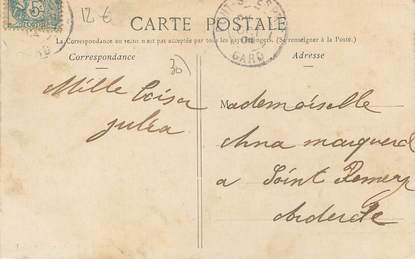 12 €
CARTE POSTALE
La Correspondance au recto n'est pas acceptée par tous les pays étrangers. (Se renseigner à la Poste.)
Correspondance
Adresse
GARD
30
Mille
julia
Mademoiselle
Anna
a Saint Remeze
Ardeche